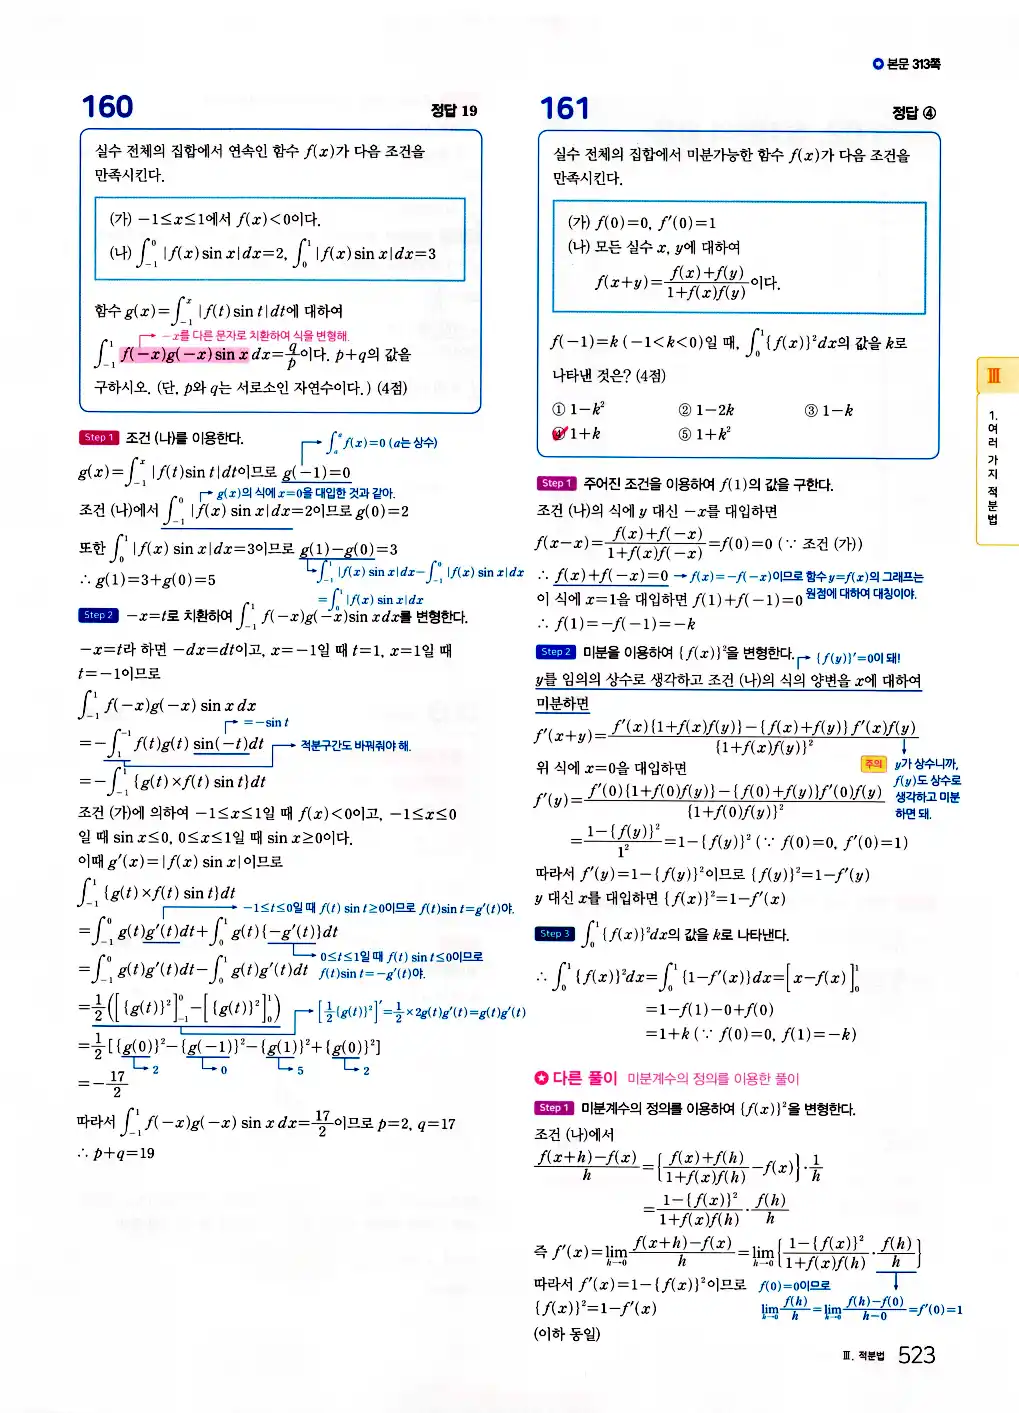 본문 313쪽
160
정답 19
실수 전체의 집합에서 연속인 함수 f(x)가 다음 조건을
만족시킨다.
(가) −1≤x≤1에서 f(x)<0이다.
(나) ∫_{−1}^{0} |f(x) sin x|dx=2, ∫_{0}^{1} |f(x) sin x|dx=3
함수 g(x)=∫_{−1}^{x} |f(t) sin t|dt에 대하여
−x를 다른 문자로 치환하여 식을 변형해.
∫_{−1}^{1} f(−x)g(−x) sin x dx=q/p이다. p+q의 값을
구하시오. (단, p와 q는 서로소인 자연수이다.) (4점)
Step 1 조건 (나)를 이용한다.
∫_{a}^{a} f(x)=0 (a는 상수)
g(x)=∫_{−1}^{x} |f(t)sin t|dt이므로 g(−1)=0
g(x)의 식에 x=0을 대입한 것과 같아.
조건 (나)에서 ∫_{−1}^{0} |f(x) sin x|dx=2이므로 g(0)=2
또한 ∫_{0}^{1} |f(x) sin x|dx=3이므로 g(1)−g(0)=3
∫_{−1}^{1} |f(x) sin x|dx−∫_{−1}^{0} |f(x) sin x|dx
∴ g(1)=3+g(0)=5
=∫_{0}^{1} |f(x) sin x|dx
Step 2 −x=t로 치환하여 ∫_{−1}^{1} f(−x)g(−x)sin xdx를 변형한다.
−x=t라 하면 −dx=dt이고, x=−1일 때 t=1, x=1일 때
t=−1이므로
∫_{−1}^{1} f(−x)g(−x) sin x dx
=−sin t
=−∫_{1}^{−1} f(t)g(t) sin(−t)dt
적분구간도 바꿔줘야 해.
=−∫_{−1}^{1} {g(t)×f(t) sin t}dt
조건 (가)에 의하여 −1≤x≤1일 때 f(x)<0이고, −1≤x≤0
일 때 sin x≤0, 0≤x≤1일 때 sin x≥0이다.
이때 g′(x)=|f(x) sin x|이므로
∫_{−1}^{1} {g(t)×f(t) sin t}dt
−1≤t≤0일 때 f(t) sin t≥0이므로 f(t)sin t=g′(t)야.
=∫_{−1}^{0} g(t)g′(t)dt+∫_{0}^{1} g(t){−g′(t)}dt
0≤t≤1일 때 f(t) sin t≤0이므로
f(t)sin t=−g′(t)야.
=∫_{−1}^{0} g(t)g′(t)dt−∫_{0}^{1} g(t)g′(t)dt
=1/2([{g(t)}²]_{−1}^{0}−[{g(t)}²]_{0}^{1})
[1/2{g(t)}²]′=1/2×2g(t)g′(t)=g(t)g′(t)
=1/2[{g(0)}²−{g(−1)}²−{g(1)}²+{g(0)}²]
2 0 5 2
=−17/2
따라서 ∫_{−1}^{1} f(−x)g(−x) sin x dx=17/2이므로 p=2, q=17
∴ p+q=19
161
정답 ④
실수 전체의 집합에서 미분가능한 함수 f(x)가 다음 조건을
만족시킨다.
(가) f(0)=0, f′(0)=1
(나) 모든 실수 x, y에 대하여
f(x+y)=(f(x)+f(y))/(1+f(x)f(y))이다.
f(−1)=k (−1<k<0)일 때, ∫_{0}^{1} {f(x)}²dx의 값을 k로
나타낸 것은? (4점)
① 1−k² ② 1−2k ③ 1−k
④ 1+k ⑤ 1+k²
Step 1 주어진 조건을 이용하여 f(1)의 값을 구한다.
조건 (나)의 식에 y 대신 −x를 대입하면
f(x−x)=(f(x)+f(−x))/(1+f(x)f(−x))=f(0)=0 (∵ 조건 (가))
∴ f(x)+f(−x)=0 → f(x)=−f(−x)이므로 함수 y=f(x)의 그래프는
원점에 대하여 대칭이야.
이 식에 x=1을 대입하면 f(1)+f(−1)=0
∴ f(1)=−f(−1)=−k
Step 2 미분을 이용하여 {f(x)}²을 변형한다.
{f(y)}′=0이 돼!
y를 임의의 상수로 생각하고 조건 (나)의 식의 양변을 x에 대하여
미분하면
f′(x+y)=(f′(x){1+f(x)f(y)}−{f(x)+f(y)}f′(x)f(y))/{1+f(x)f(y)}²
위 식에 x=0을 대입하면
주의 y가 상수니까,
f(y)도 상수로
생각하고 미분
하면 돼.
f′(y)=(f′(0){1+f(0)f(y)}−{f(0)+f(y)}f′(0)f(y))/{1+f(0)f(y)}²
=(1−{f(y)}²)/1²=1−{f(y)}² (∵ f(0)=0, f′(0)=1)
따라서 f′(y)=1−{f(y)}²이므로 {f(y)}²=1−f′(y)
y 대신 x를 대입하면 {f(x)}²=1−f′(x)
Step 3 ∫_{0}^{1} {f(x)}²dx의 값을 k로 나타낸다.
∴ ∫_{0}^{1} {f(x)}²dx=∫_{0}^{1} {1−f′(x)}dx=[x−f(x)]_{0}^{1}
=1−f(1)−0+f(0)
=1+k (∵ f(0)=0, f(1)=−k)
다른 풀이 미분계수의 정의를 이용한 풀이
Step 1 미분계수의 정의를 이용하여 {f(x)}²을 변형한다.
조건 (나)에서
(f(x+h)−f(x))/h={(f(x)+f(h))/(1+f(x)f(h))−f(x)}·1/h
=(1−{f(x)}²)/(1+f(x)f(h))·f(h)/h
즉 f′(x)=lim_{h→0} (f(x+h)−f(x))/h=lim_{h→0}{(1−{f(x)}²)/(1+f(x)f(h))·f(h)/h}
따라서 f′(x)=1−{f(x)}²이므로
f(0)=0이므로
{f(x)}²=1−f′(x)
lim_{h→0} f(h)/h=lim_{h→0} (f(h)−f(0))/(h−0)=f′(0)=1
(이하 동일)
Ⅲ
1. 여러 가지 적분법
Ⅲ. 적분법 523